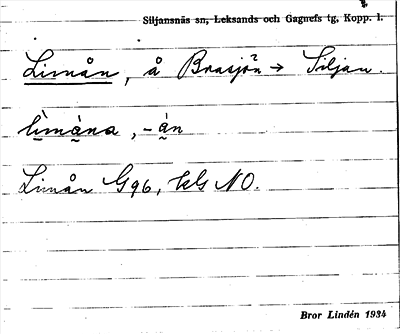 Siljansnäs sn, Leksands och Gagnefs tg, Kopp. l.
Limån, å Brasjön → Siljan.
lìmàna, -àn
Limån G96, bl NO.
Bror Lindén 1934